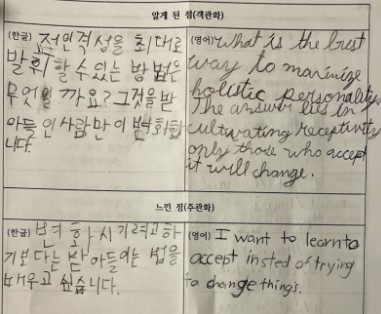 알게 된 점(객관화)
(한글) 전인격성을 최대로
발휘 할 수 있는 방법은
무엇일 까요? 그것을 받
아들 인 사람 만 이 변화합
니다.
(영어) What is the best
way to maximize
holistic personality.
The answer lies in
cultivating receptivity
only those who accept
it will change.
느낀 점(주관화)
(한글) 변 화 시 키려고 하
기보 다는 받 아들이는 법을
배우고 싶습니다.
(영어) I want to learn to
accept insted of trying
to change things.